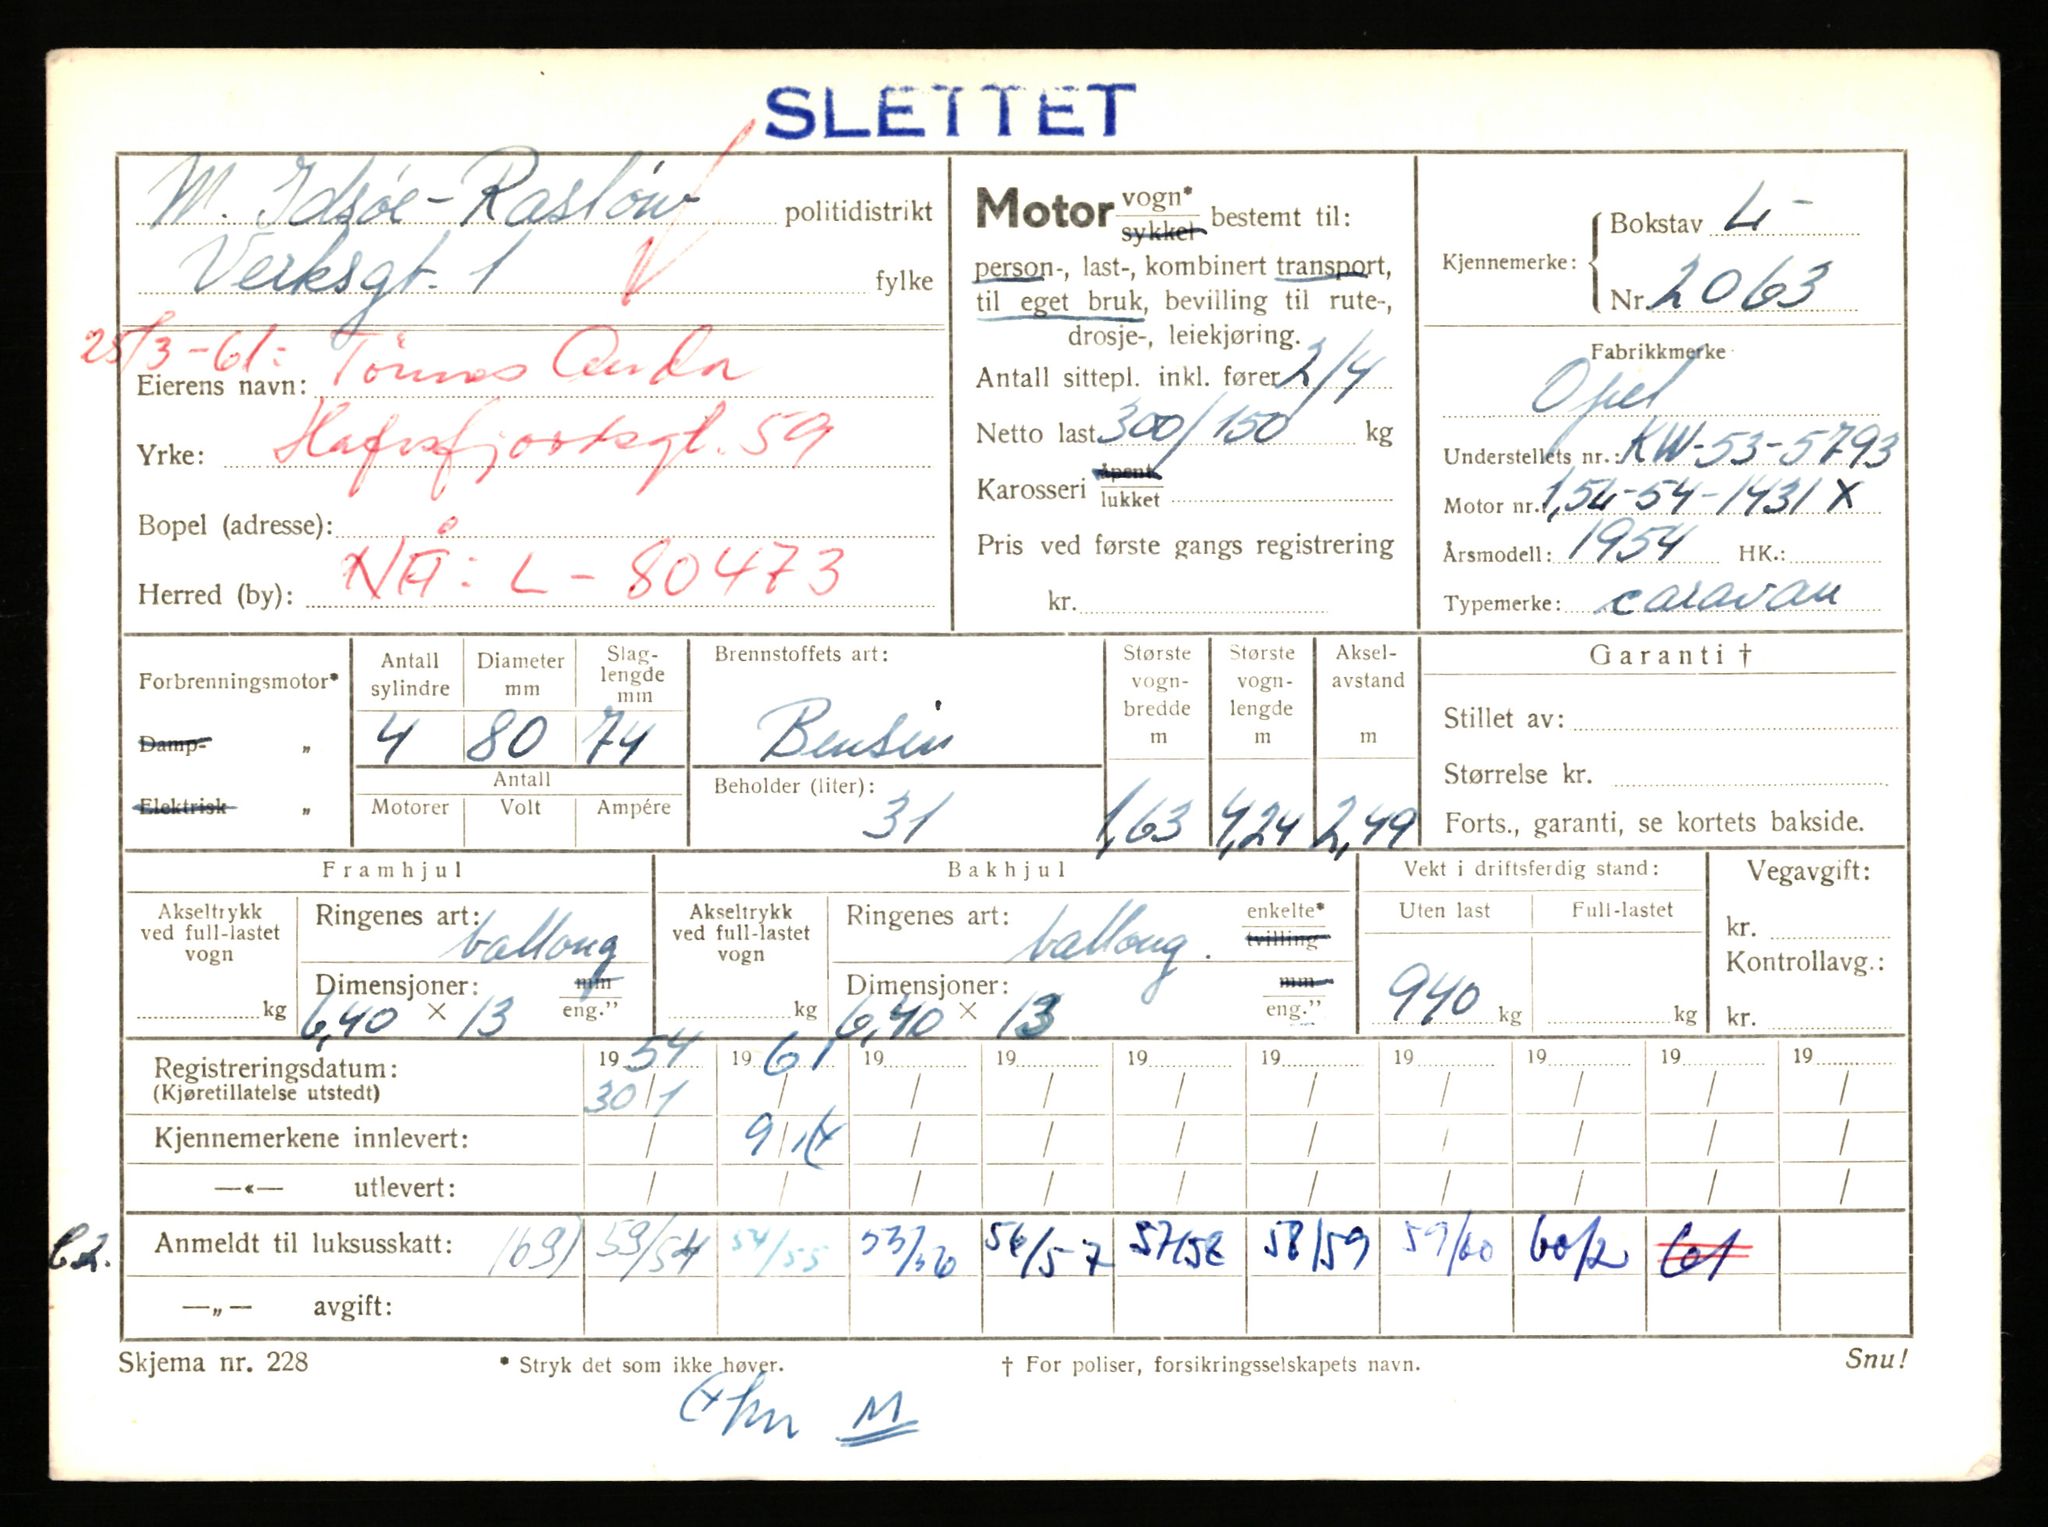 SLETTET
M. Idsøe-Rasløw politidistrikt
Verksgt. 1 fylke
25/3-61:
Eierens navn: Tönnes Anda
Yrke: Hafrsfjordsgt. 59
Bopel (adresse):
Herred (by): NÅ: L - 80473
Motor vogn* sykkel bestemt til:
person-, last-, kombinert transport,
til eget bruk, bevilling til rute-,
drosje-, leiekjøring.
Antall sittepl. inkl. fører 2/4
Netto last 300/150 kg
Karosseri åpent lukket
Pris ved første gangs registrering
kr.
Kjennemerke: Bokstav L-
Nr. 2063
Fabrikkmerke
Opel
Understellets nr.: KW-53-5793
Motor nr. 1,54-54-1431 X
Årsmodell: 1954 HK.:
Typemerke: caravan
Forbrenningsmotor*
Damp- „
Elektrisk „
Antall sylindre 4
Diameter mm 80
Slag-
lengde
mm
74
Antall
Motorer Volt Ampére
Brennstoffets art:
Bensin
Beholder (liter):
31
Største
vogn-
bredde
m
1,63
Største
vogn-
lengde
m
4,24
Aksel-
avstand
m
2,49
Garanti †
Stillet av:
Størrelse kr.
Forts., garanti, se kortets bakside.
Framhjul
Akseltrykk
ved full-lastet
vogn
kg
Ringenes art:
ballong
Dimensjoner: mm
6,40 × 13 eng.”
Bakhjul
Akseltrykk
ved full-lastet
vogn
kg
Ringenes art: enkelte*
ballong. tvilling
Dimensjoner: mm
6,40 × 13 eng.”
Vekt i driftsferdig stand:
Uten last Full-lastet
940 kg kg
Vegavgift:
kr.
Kontrollavg.:
kr.
Registreringsdatum: 19 54 19 61 19 19 19 19 19 19 19 19
(Kjøretillatelse utstedt) 30/1 / / / / / / / / /
Kjennemerkene innlevert: / 9/ / / / / / / / /
—«— utlevert: / / / / / / / / / /
Anmeldt til luksusskatt: 53/54 54/55 56/57 57/58 58/59 59/60 60/2 61
—„— avgift:
Skjema nr. 228 * Stryk det som ikke høver. † For poliser, forsikringsselskapets navn. Snu!
M